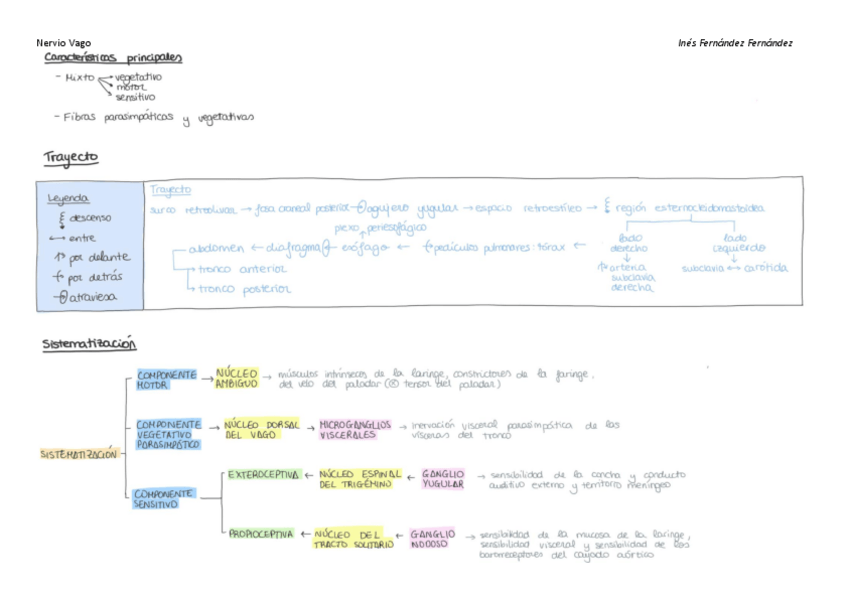 Nervio Vago
Inés Fernández Fernández
Características principales
- Mixto → vegetativo
→ motor
→ sensitivo
- Fibras parasimpáticas y vegetativas
Trayecto
Leyenda
descenso
↔ entre
↑ por delante
por detrás
atraviesa
Trayecto
surco retroolivar → fosa craneal posterior agujero yugular → espacio retroestíleo → región esternocleidomastoidea
plexo periesofágico
abdomen ← diafragma ← esófago ← pedículos pulmonares: tórax ←
→ tronco anterior
→ tronco posterior
lado derecho
↓
arteria subclavia derecha
lado izquierdo
↓
subclavia ↔ carótida
Sistematización
SISTEMATIZACIÓN
COMPONENTE MOTOR → NÚCLEO AMBIGUO → músculos intrínsecos de la laringe, constrictores de la faringe,
del velo del paladar (⊗ tensor del paladar)
COMPONENTE VEGETATIVO PARASIMPÁTICO → NÚCLEO DORSAL DEL VAGO → MICROGANGLIOS VISCERALES → inervación visceral parasimpática de las
vísceras del tronco
COMPONENTE SENSITIVO
EXTEROCEPTIVA ← NÚCLEO ESPINAL DEL TRIGÉMINO ← GANGLIO YUGULAR → sensibilidad de la concha y conducto
auditivo externo y territorio meníngeo
PROPIOCEPTIVA ← NÚCLEO DEL TRACTO SOLITARIO ← GANGLIO NODOSO → sensibilidad de la mucosa de la laringe,
sensibilidad visceral y sensibilidad de los
barorreceptores del cayado aórtico